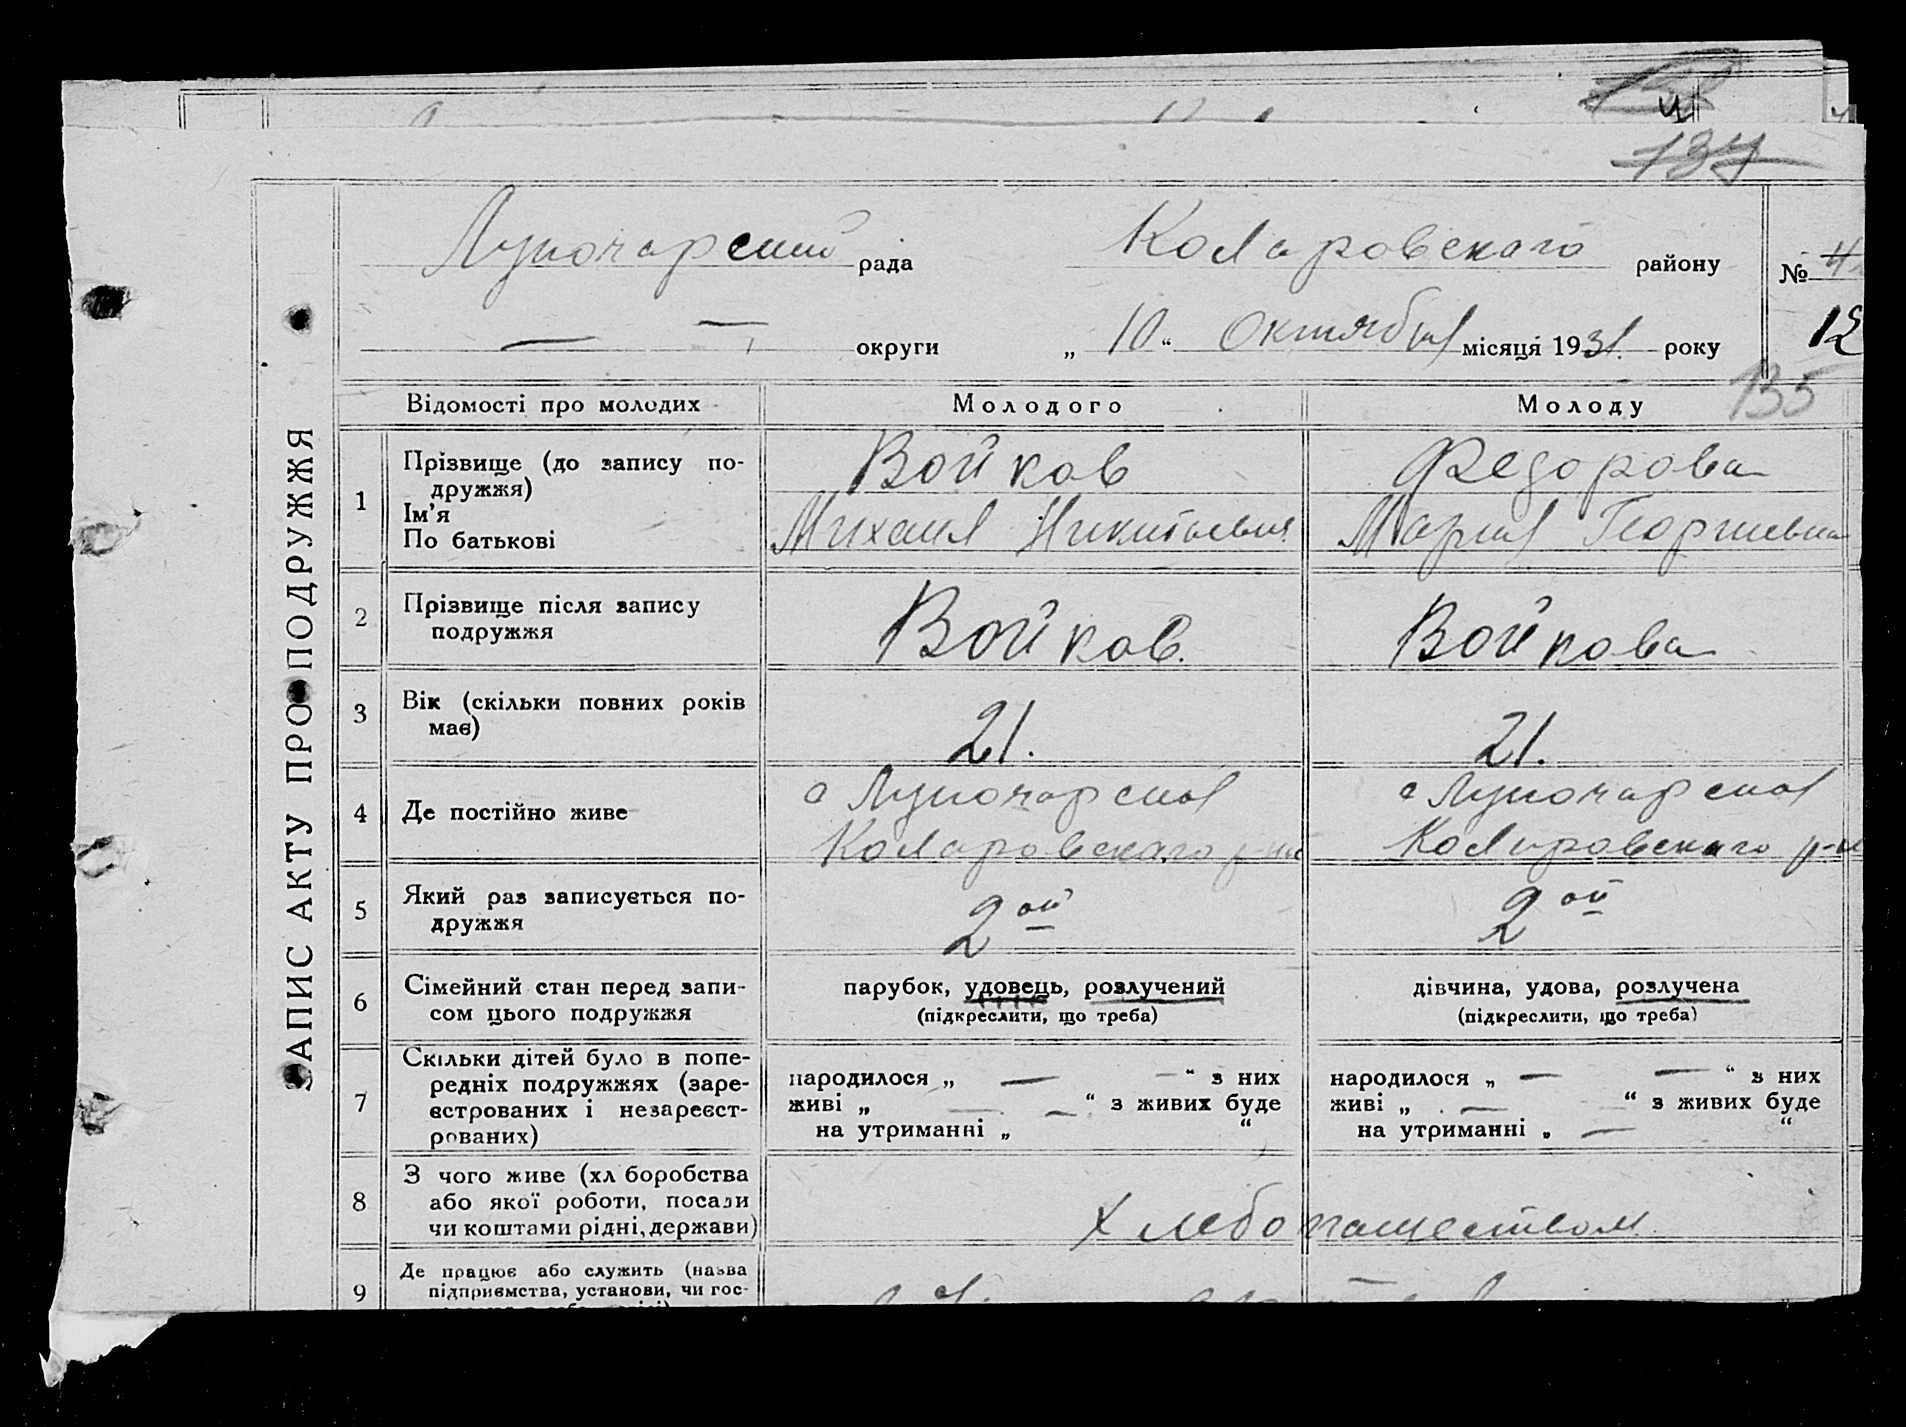 134
Луночарский рада Коларовскаго району № 4
— — округи „ 10 “ Октября місяця 1931. року 12
135
ЗАПИС АКТУ ПРО ПОДРУЖЖЯ
Відомості про молодих Молодого Молоду
1 Прізвище (до запису по-
дружжя)
Ім’я
По батькові
Войков
Михаил Никитьевич
Федорова
Мария Георгиевна
2 Прізвище після запису
подружжя
Войков.
Войкова
3 Вік (скільки повних років
має)
21.
21.
4 Де постійно живе
с Луночарская
Коларовскаго р-на
с Луночарская
Коларовскаго р-н
5 Який раз записується по-
дружжя
2ой
2ой
6 Сімейний стан перед запи-
сом цього подружжя
парубок, удовець, розлучений
(підкреслити, що треба)
дівчина, удова, розлучена
(підкреслити, що треба)
7 Скільки дітей було в попе-
редніх подружжях (заре-
єстрованих і незареєст-
рованих)
народилося „ — — “ з них
живі „ — — “ з живих буде
на утриманні „ “
народилося „ — — “ з них
живі „ — — “ з живих буде
на утриманні „ — “
8 З чого живе (хл боробства
або якої роботи, посади
чи коштами рідні, держави)
Хлебопашеством
9 Де працює або служить (назва
підприємства, установи, чи гос-